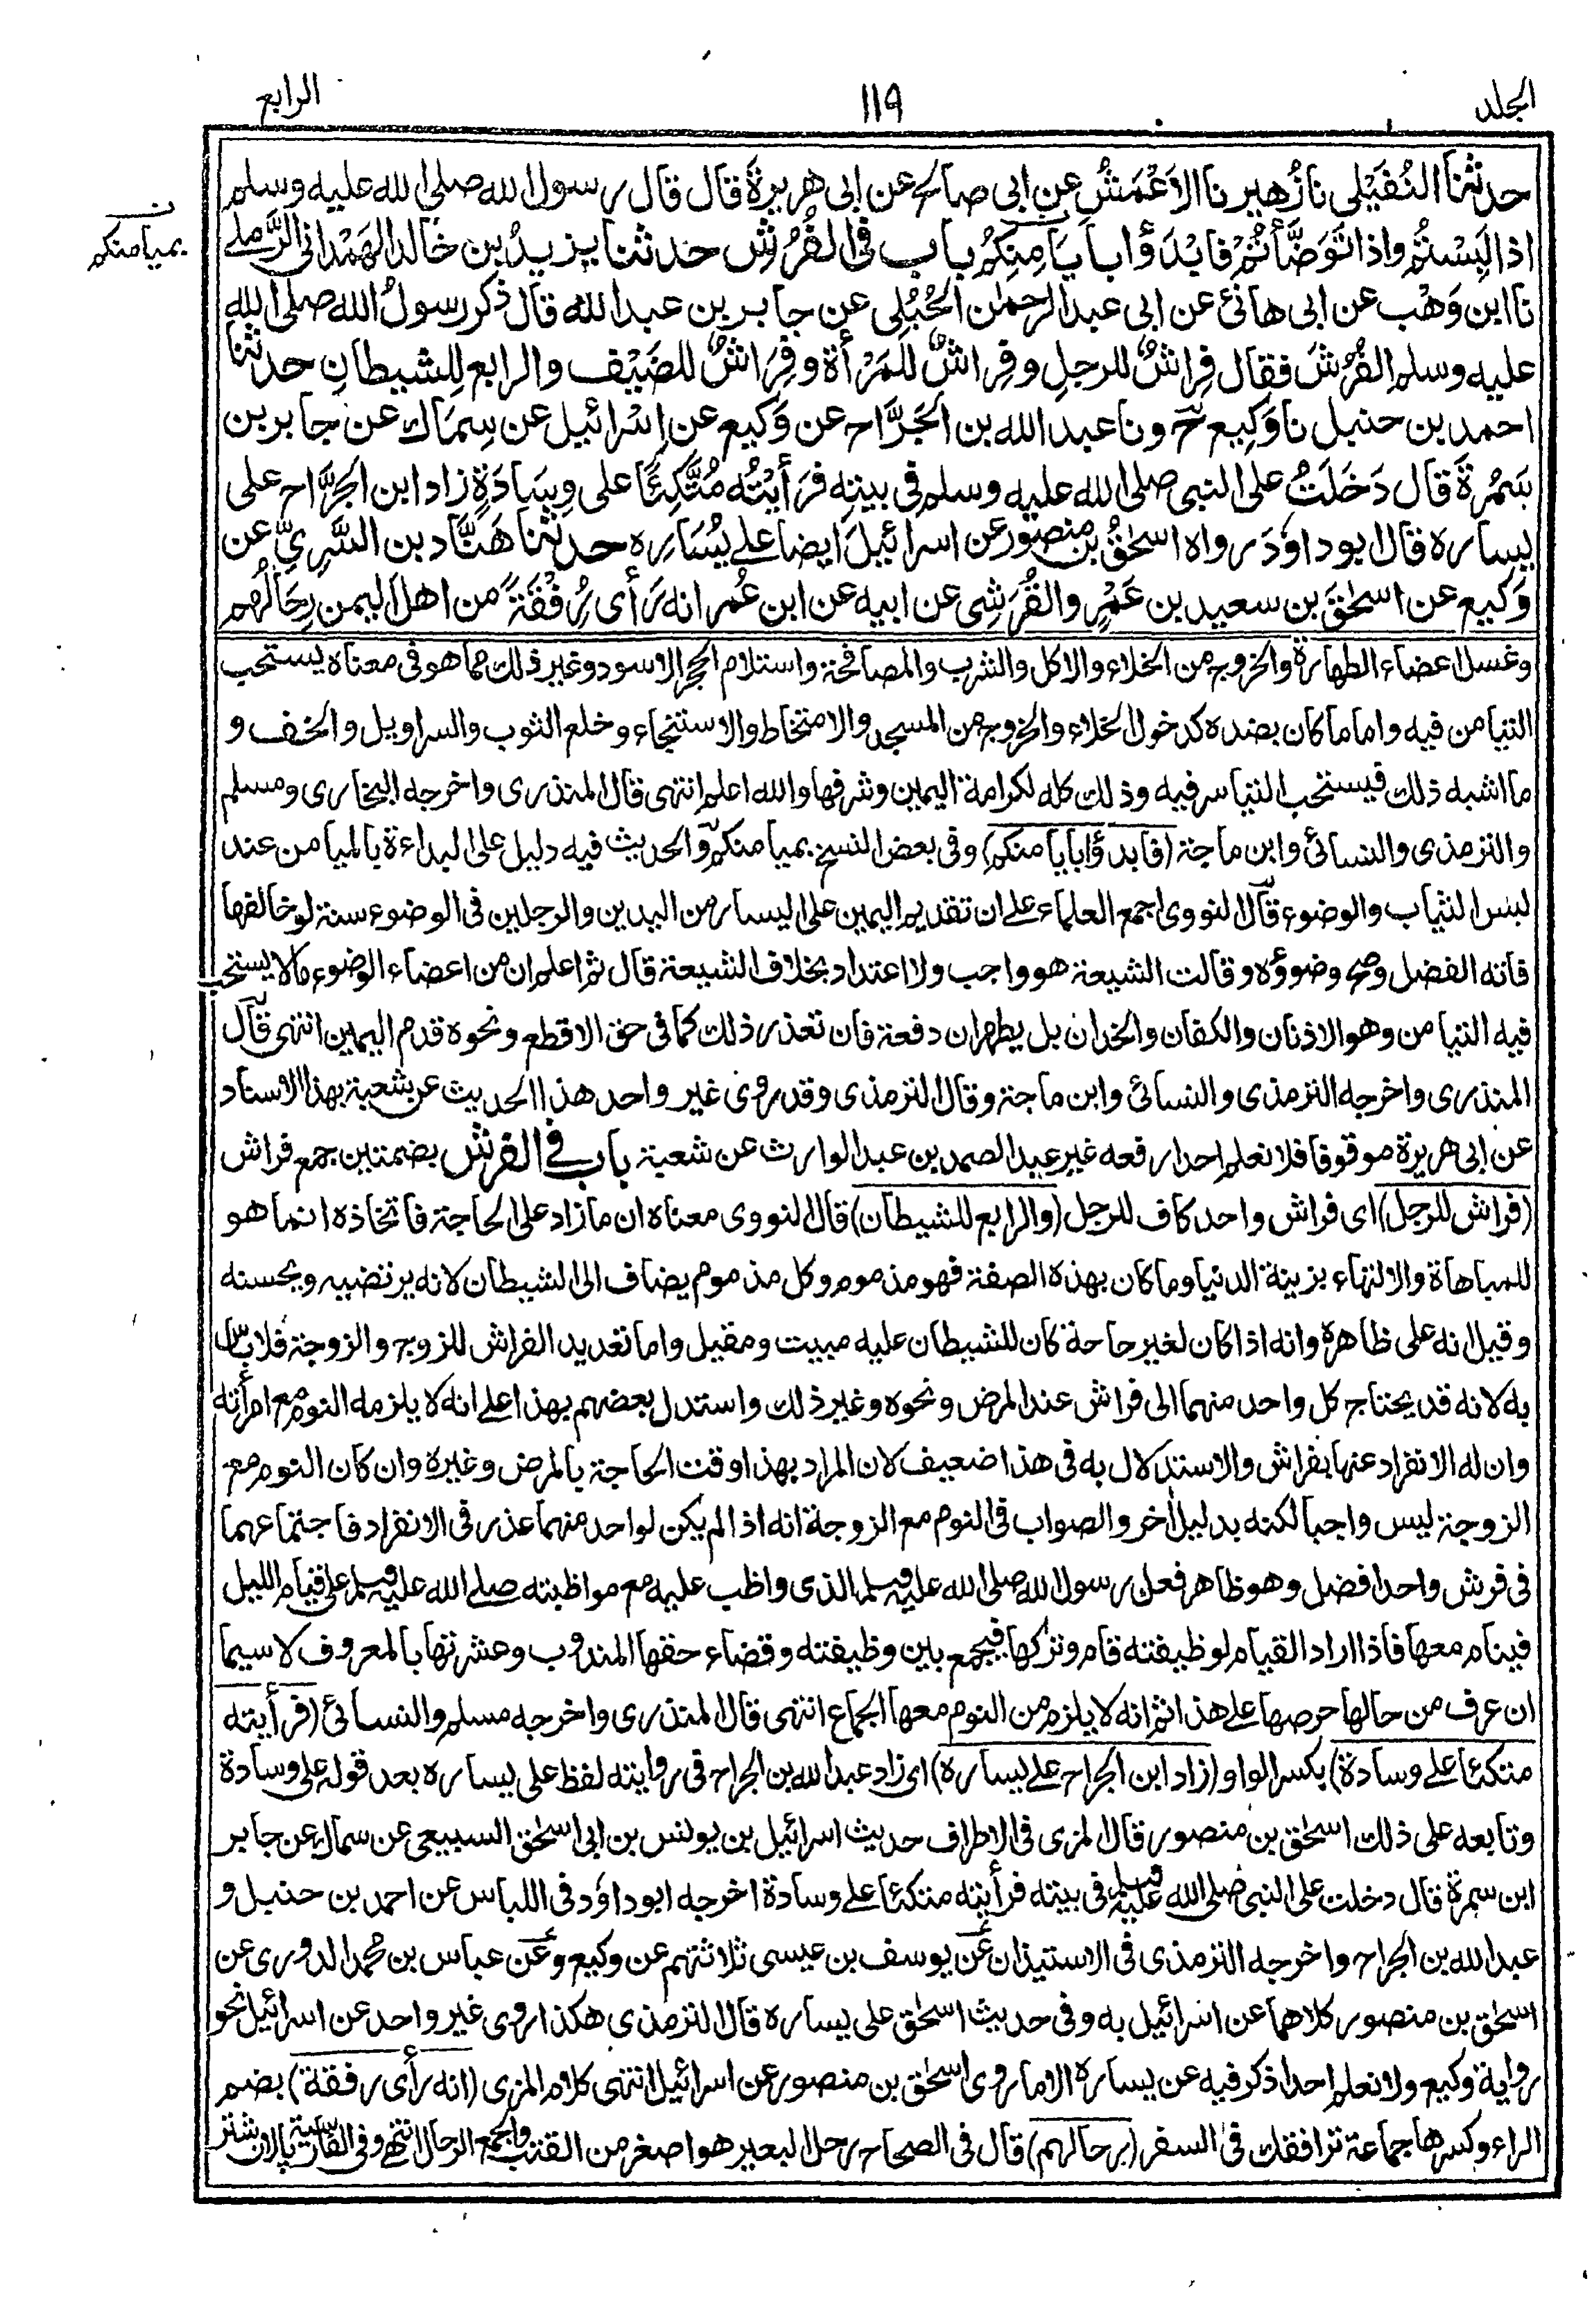 المجلد
١١٩
الرابع
حدثنا النُفَيْلى نا زُهير نا الاَعْمَشُ عن ابى صالح عن ابى هريرةَ قال قال رسول الله صلى الله عليه وسلم
اذا لَبِسْتُم واذا تَوَضَّأتُمْ فابْدَؤا بأيَامِنِكُمْ باب فى الفُرُشِ حدثنا يزيدُ بن خالد الهَمْدانى الرَّملے
نـ
بميامنكم
نا ابن وَهْب عن ابى هانئ عن ابى عبد الرحمٰن الحُبُلِى عن جابر بن عبد الله قال ذكر رسولُ الله صلى الله
عليه وسلم الفُرُشَ فقال فِراشٌ للرجلِ وفِراشٌ للمَرْأة وفِرَاشٌ للضَيْف والرابع لِلشيطانِ حدثنا
احمد بن حنبل نا وَكِيع ح ونا عبد الله بن الجَرَّاح عن وَكيع عن اِسْرائيل عن سِمَاك عن جابر بن
سَمُرةَ قال دَخَلتُ على النبى صلى الله عليه وسلم فى بيتِه فرَأيْتُه مُتَّكِئًا على وِسَادَةٍ زاد ابن الجرَّاح على
يساره قال ابوداوَد رواه اسحٰقُ بن منصور عن اسرائيلَ ايضا علے يَسَارِه حدثنا هَنَّاد بن السَّرِىِّ عن
وَكيع عن اسحٰقَ بن سعيد بن عَمْرٍو القُرَشِى عن ابيه عن ابن عُمر انه رَأى رُفْقَةً من اهل اليمن رِحَالُهم
وغسل اعضاء الطهارة والخروج من الخلاء والاكل والشرب والمصافحة واستلام الحجر الاسود وغير ذلك مما هو فى معناه يستحب
التيامن فيه واما ما كان بضده كدخول الخلاء والخروج من المسجد والامتخاط والاستنجاء وخلع الثوب والسراويل والخف و
ما اشبه ذلك فيستحب التياسر فيه وذلك كله لكرامة اليمين وشرفها والله اعلم انتهى قال المنذرى واخرجه البخارى ومسلم
والترمذى والنسائى وابن ماجة (فابدؤا بأيامنكم) وفى بعض النسخ بميامنكم والحديث فيه دليل على البداءة بالميامن عند
لبس الثياب والوضوء قال النووى اجمع العلماء علے ان تقديم اليمين على اليسار من اليدين والرجلين فى الوضوء سنة لو خالفها
فاته الفضل وصح وضوؤه وقالت الشيعة هو واجب ولا اعتداد بخلاف الشيعة قال ثم اعلم ان من اعضاء الوضوء ما لا يستحب
فيه التيامن وهو الاذنان والكفان والخدان بل يطهران دفعة فان تعذر ذلك كما فى حق الاقطع ونحوه قدم اليمين انتهى قال
المنذرى واخرجه الترمذى والنسائى وابن ماجة وقال الترمذى وقد روى غير واحد هذا الحديث عن شعبة بهذا الاسناد
عن ابى هريرة موقوفا فلا نعلم احدا رفعه غير عبد الصمد بن عبد الوارث عن شعبة باب فے الفرش بضمتين جمع فراش
(فراش للرجل) اى فراش واحد كاف للرجل (والرابع للشيطان) قال النووى معناه ان ما زاد على الحاجة فاتخاذه انما هو
للمباهاة والالتهاء بزينة الدنيا وما كان بهذه الصفة فهو مذموم وكل مذموم يضاف الى الشيطان لانه يرتضيه ويحسنه
وقيل انه على ظاهره وانه اذا كان لغير حاجة كان للشيطان عليه مبيت ومقيل واما تعديد الفراش للزوج والزوجة فلا بأس
به لانه قد يحتاج كل واحد منهما الى فراش عند المرض ونحوه وغير ذلك واستدل بعضهم بهذا علے انه لا يلزمه النوم مع امرأته
وان له الانفراد عنها بفراش والاستدلال به فى هذا ضعيف لان المراد بهذا وقت الحاجة بالمرض وغيره وان كان النوم مع
الزوجة ليس واجبا لكنه بدليل اٰخر والصواب فى النوم مع الزوجة انه اذا لم يكن لواحد منهما عذر فى الانفراد فاجتماعهما
فى فرش واحد افضل وهو ظاهر فعل رسول الله صلى الله عليه وسلم الذى واظب عليه مع مواظبته صلے الله عليه وسلم على قيام الليل
فينام معها فاذا اراد القيام لوظيفته قام وتركها فيجمع بين وظيفته وقضاء حقها المندوب وعشرتها بالمعروف لاسيما
ان عرف من حالها حرصها علے هذا ثم انه لا يلزم من النوم معها الجماع انتهى قال المنذرى واخرجه مسلم والنسائى (فرأيته
متكئا علے وسادة) بكسر الواو (زاد ابن الجراح علے يساره) اى زاد عبد الله بن الجراح فى روايته لفظ على يساره بعد قوله على وسادة
وتابعه على ذلك اسحٰق بن منصور قال المزى فى الاطراف حديث اسرائيل بن يونس بن ابى اسحٰق السبيعى عن سماك عن جابر
ابن سمرة قال دخلت على النبى صلى الله عليه وسلم فى بيته فرأيته متكئا علے وسادة اخرجه ابوداوَد فى اللباس عن احمد بن حنبل و
عبد الله بن الجراح واخرجه الترمذى فى الاستيذان عن يوسف بن عيسى ثلاثتهم عن وكيع وعن عباس بن محمد الدورى عن
اسحٰق بن منصور كلاهما عن اسرائيل به وفى حديث اسحٰق على يساره قال الترمذى هكذا روى غير واحد عن اسرائيل نحو
رواية وكيع ولا نعلم احدا ذكر فيه عن يساره الا ما روى اسحٰق بن منصور عن اسرائيل انتهى كلام المزى (انه رأى رفقة) بضم
الراء وكسرها جماعة ترافقك فى السفر (رحالهم) قال فى الصحاح رحل البعير هو اصغر من القتب والجمع الرحال انتهے وفى الفارسية پالان شتر